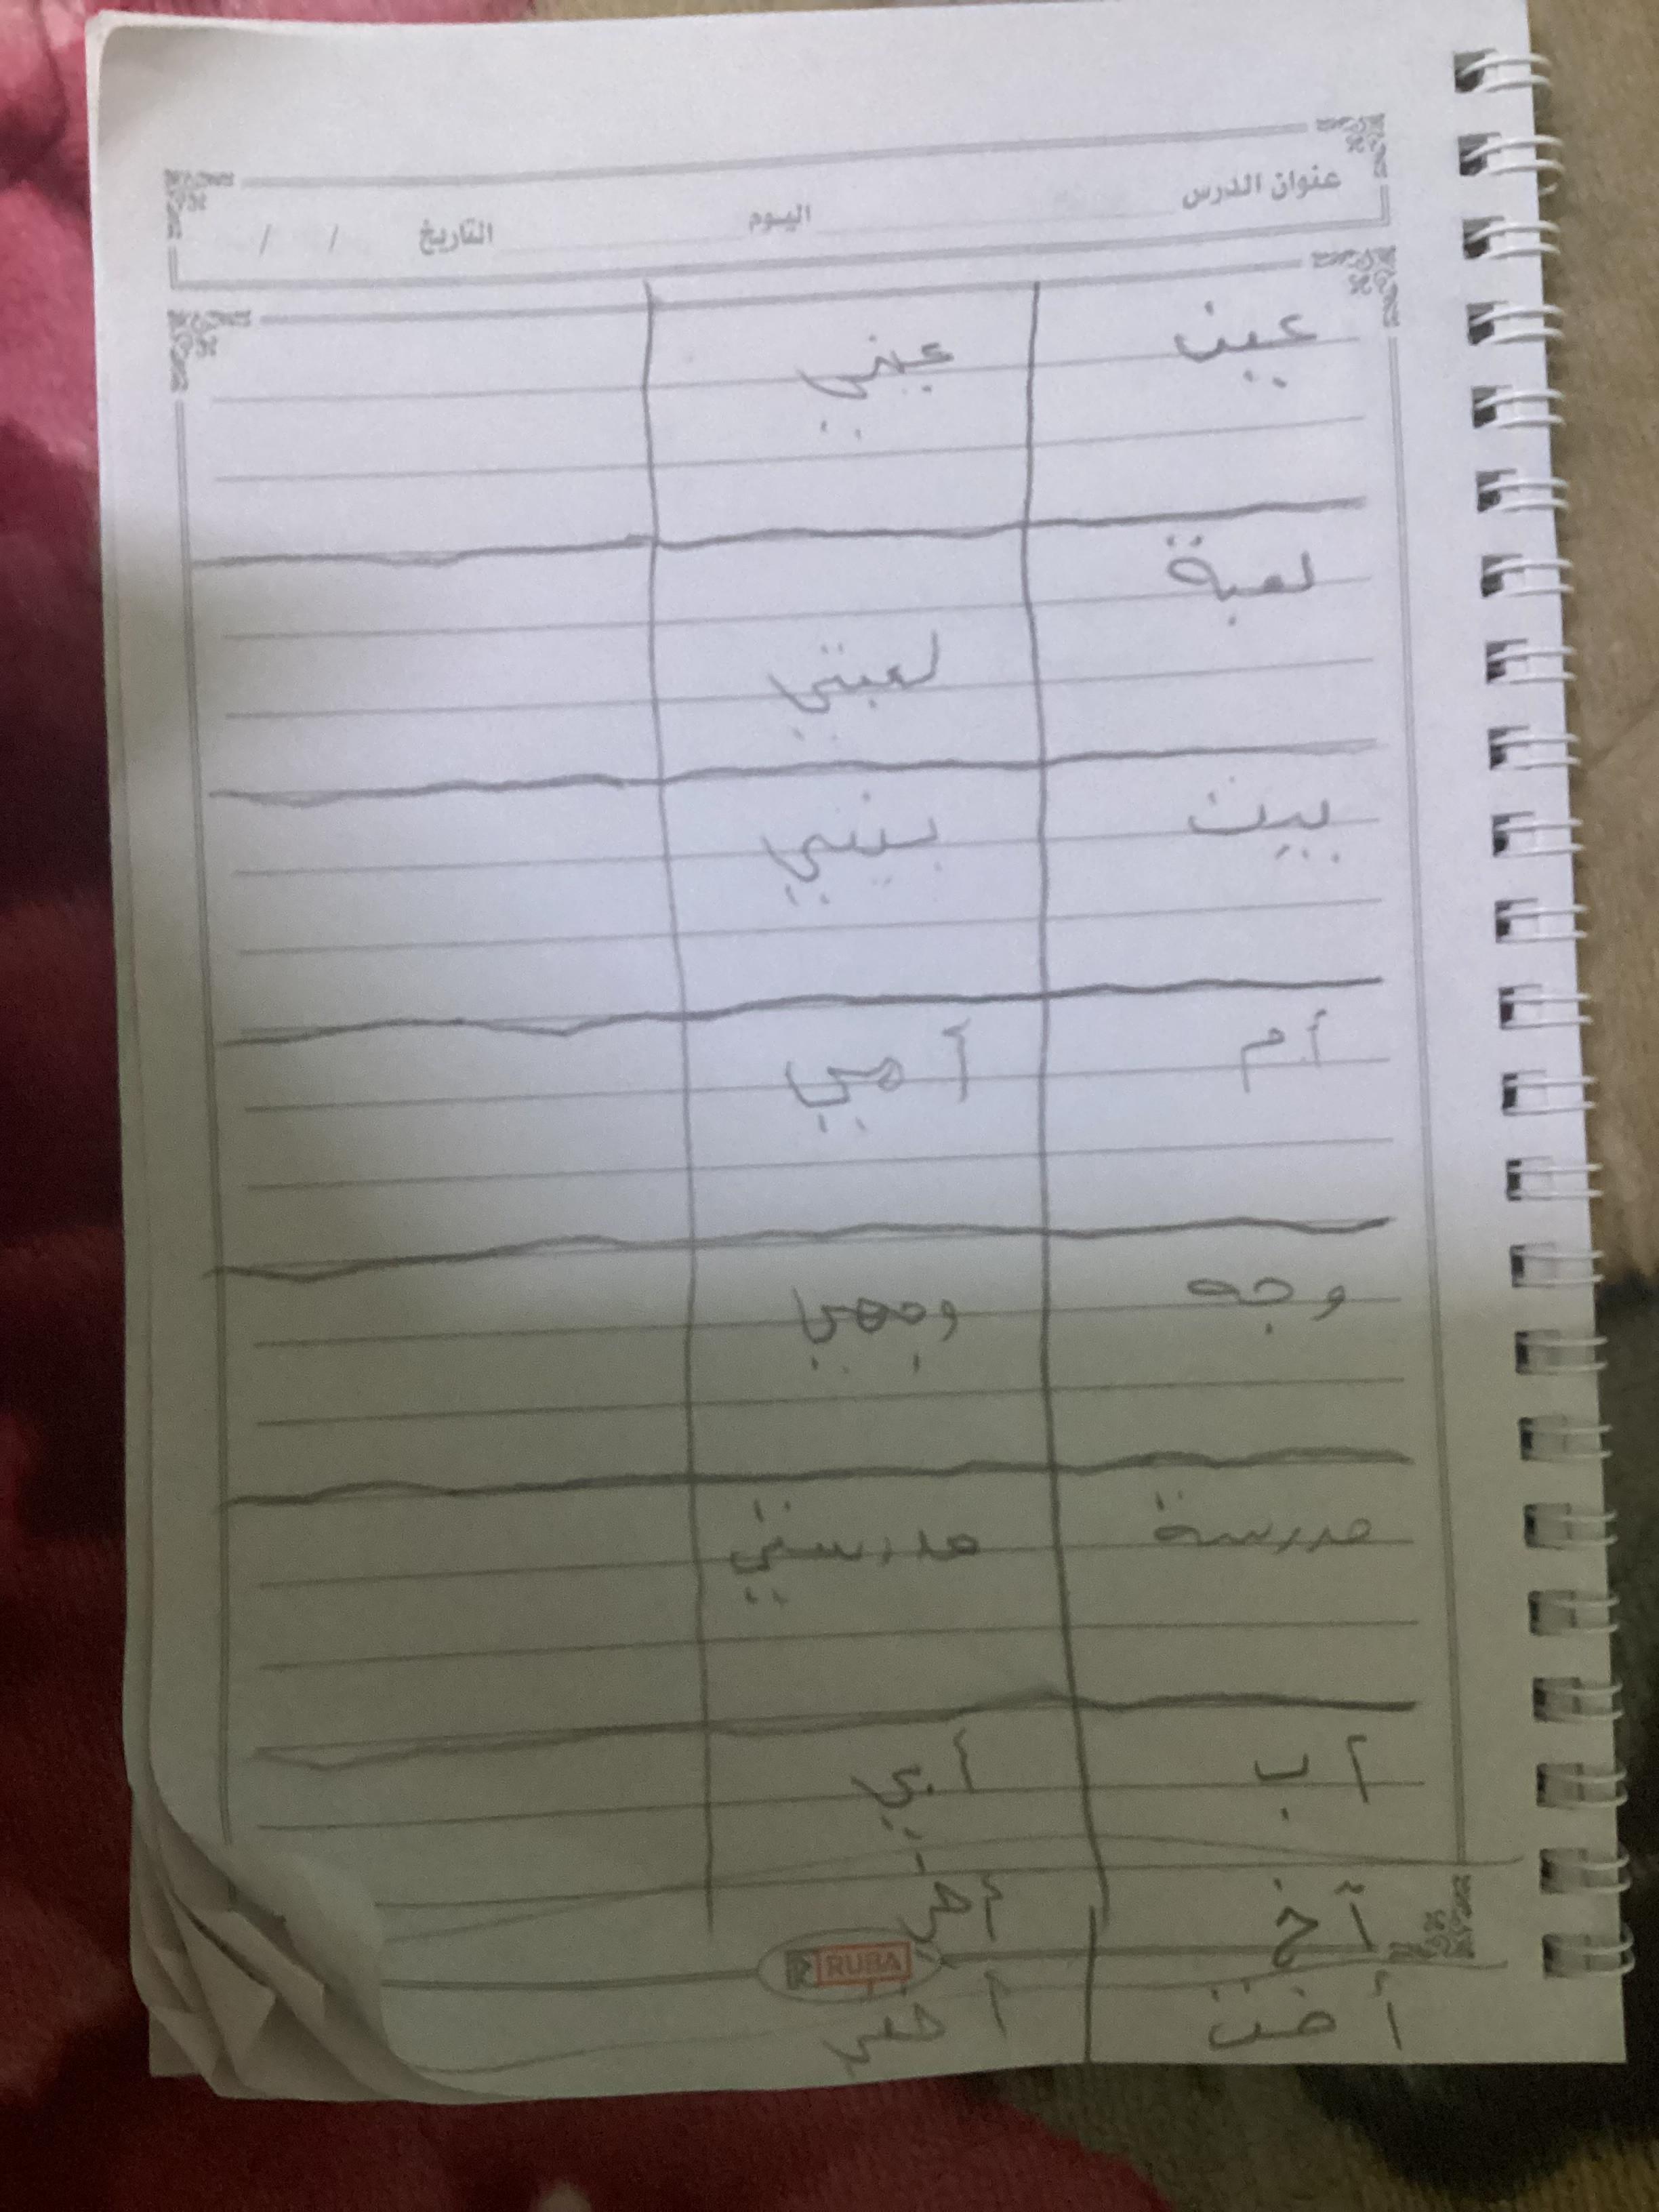 عنوان الدرس اليوم التاريخ / /
عين عيني
لعبة
لعبتي
بيت بيتي
أم أمي
وجه وجهي
مدرسة مدرستي
أب أبي
أخ أخي
RUBA
أخت